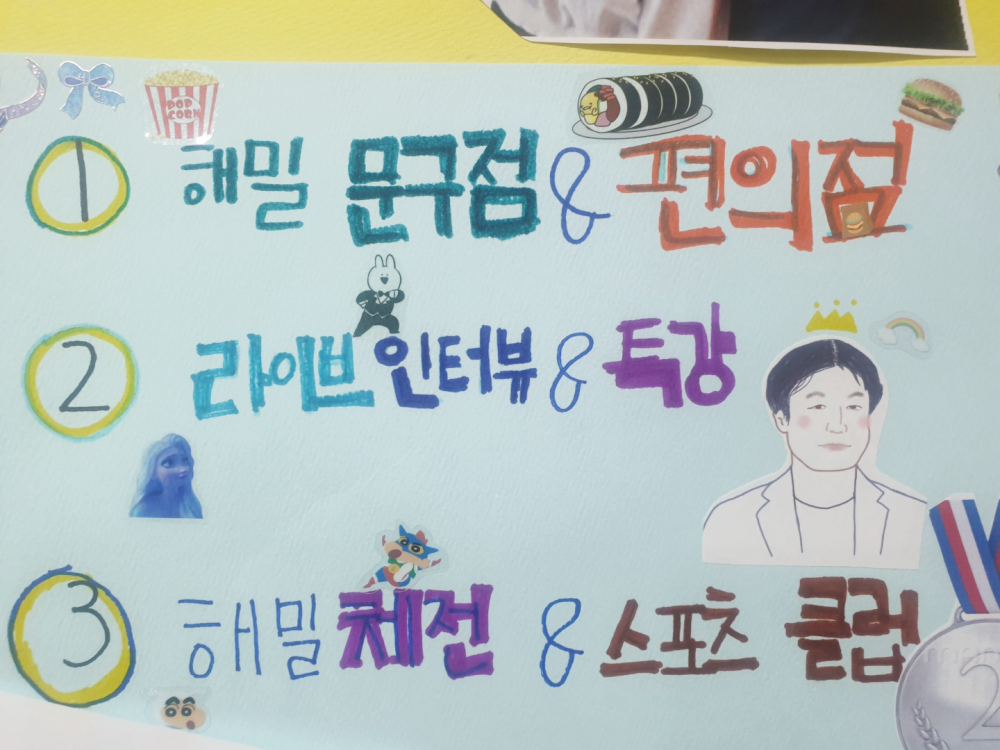 POP CORN
① 해밀 문구점 & 편의점
② 라이브 인터뷰 & 특강
③ 해밀 체전 & 스포츠 클럽
2